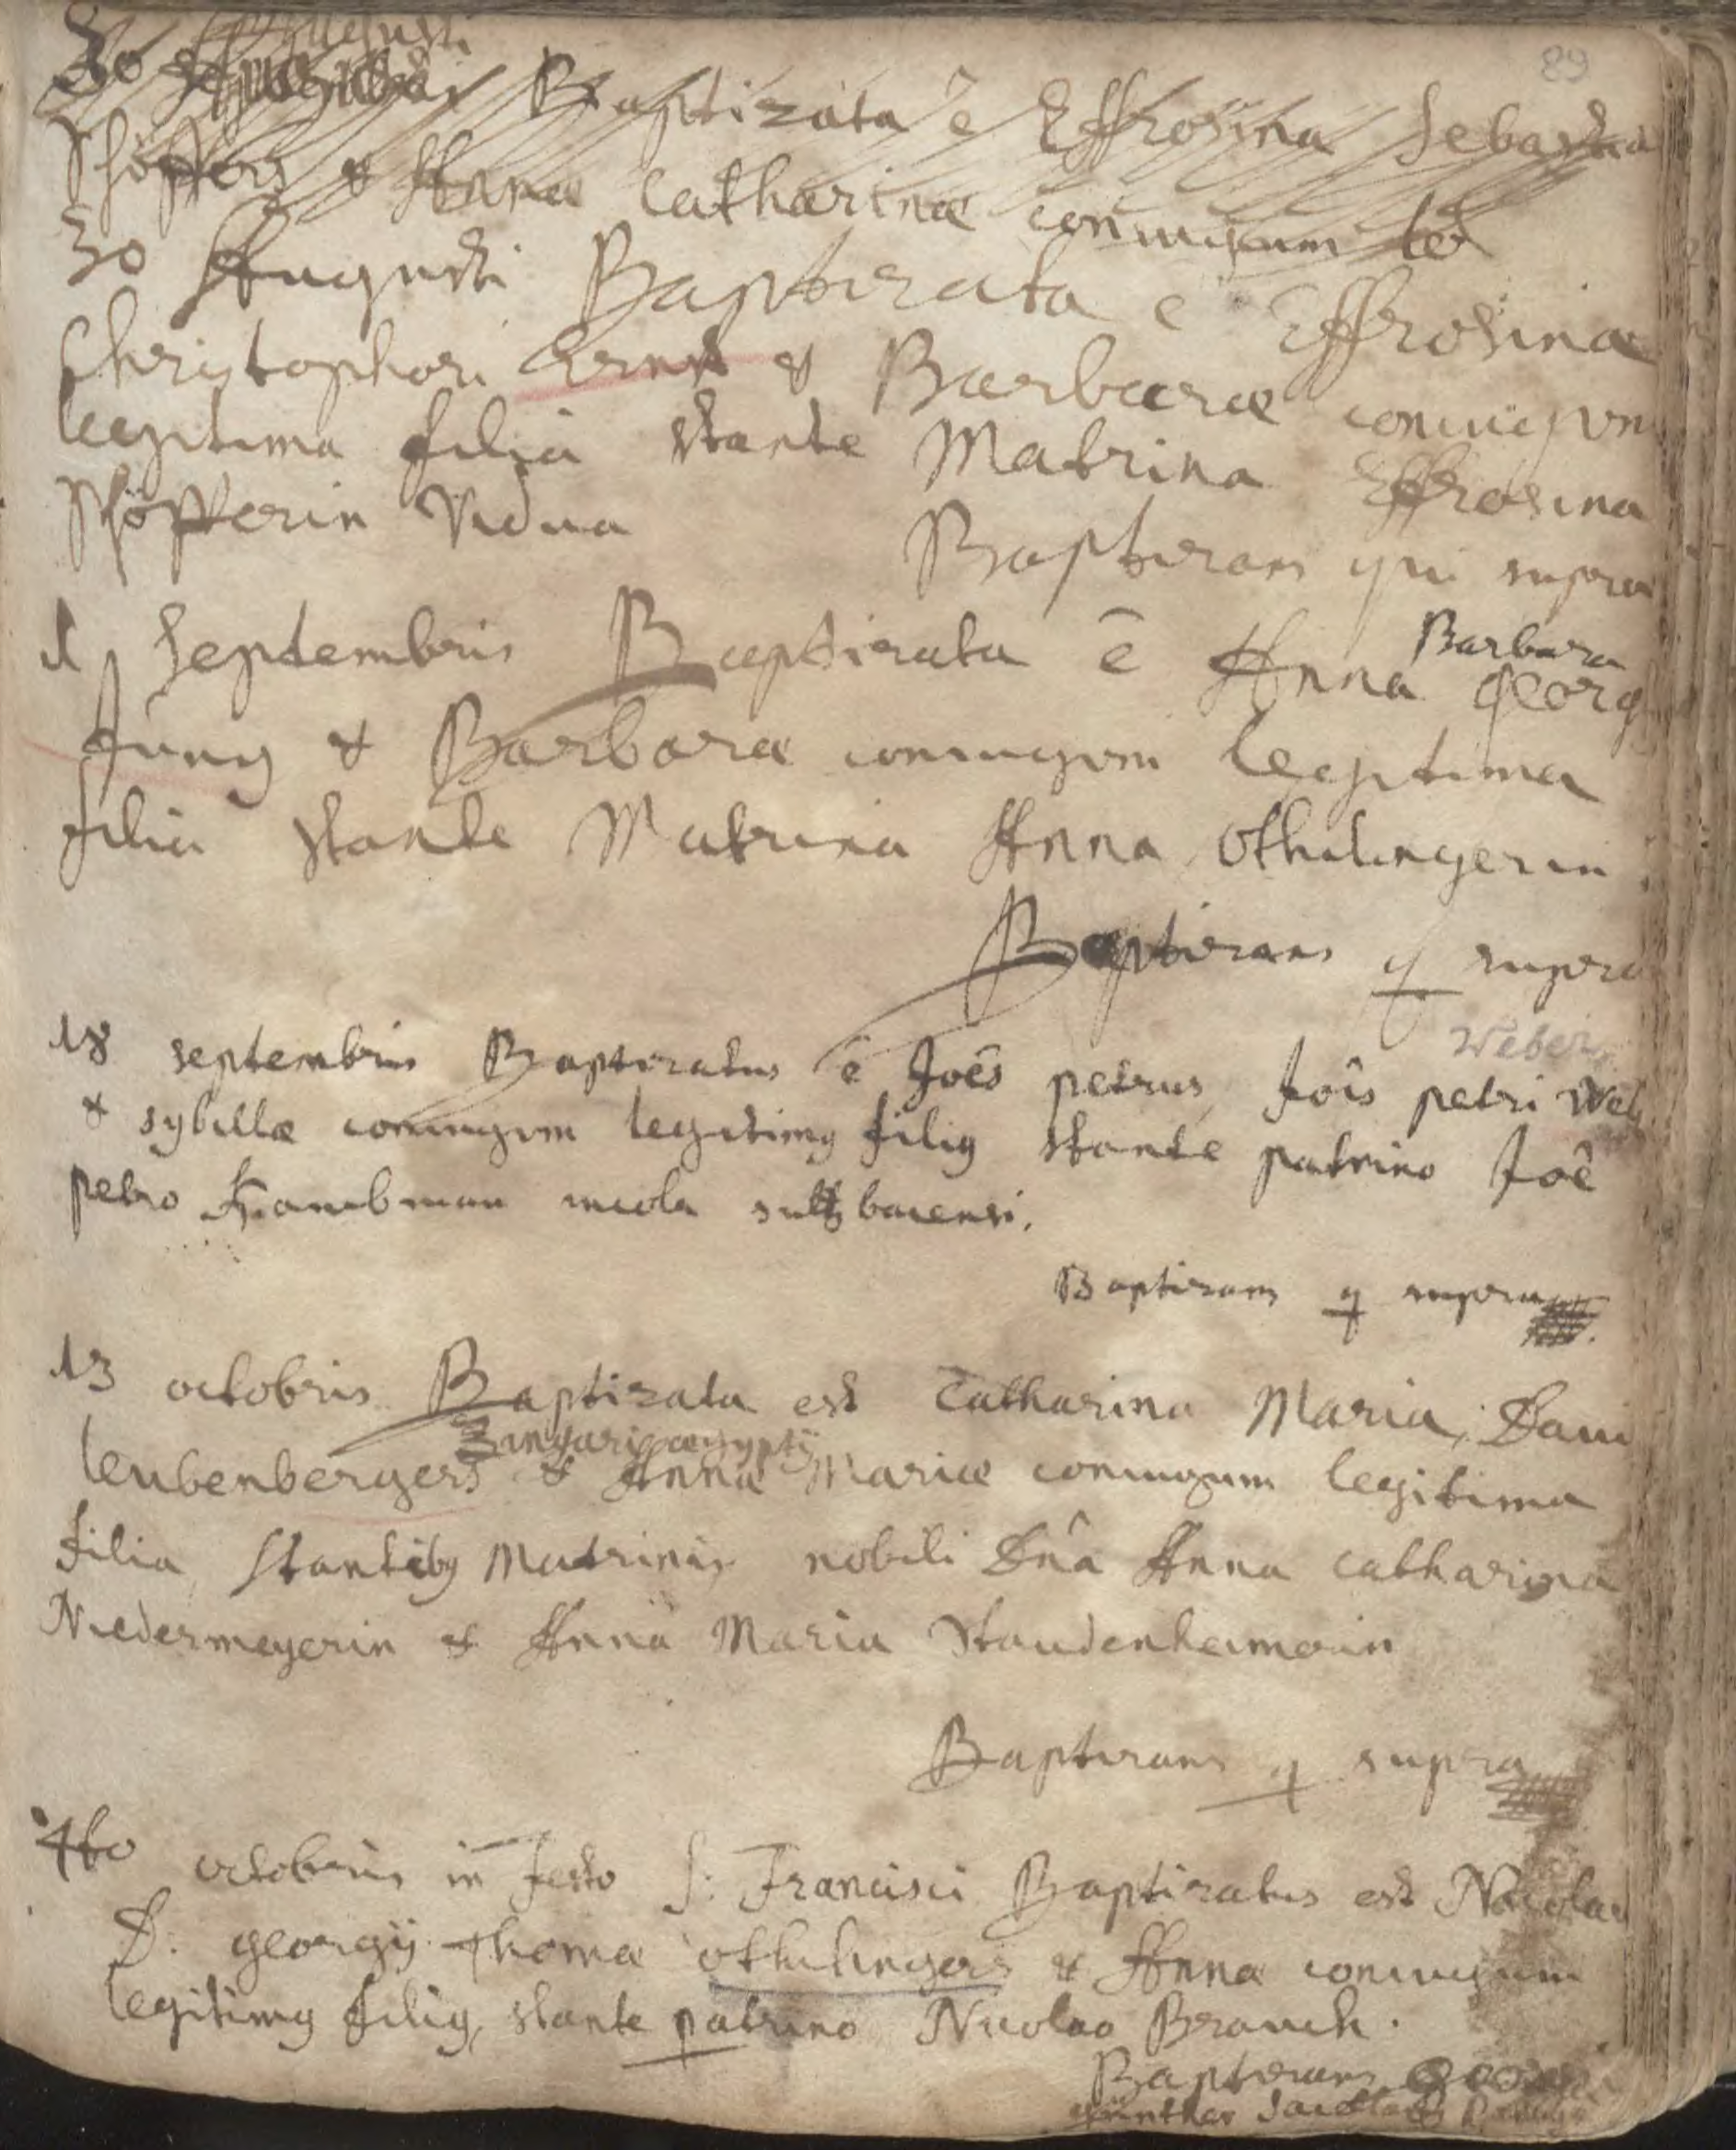 89
Augusti
30 Baptizata ē Effrosina Sebastia
Schöffers & Annæ Catharinæ coniugum
30 Augusti Baptizata ē Effrosina
Christophori Ernst & Barbaræ coniugum
legitima filia stante Matrina Effrosina
Schöfferin Vidua
Baptizans qui supra
1 Septembris Baptizata ē Anna Barbara Georg
Jung & Barbaræ coniugum legitima
filia stante Matrina Anna Othilingerin
Baptizans q supra
Weber
18 septembris Baptizatus ē Joēs petrus, Jois petri Web
& sybillæ coniugum legitimg filig stante patrino Joê
petro incola sultzbacensi.
Baptizans q supra
13 octobris Baptizata est Catharina Maria, Davi
Zingari ægyptij
leubenbergers & Annæ Mariæ coniugum legitima
filia, stantibg Matrinis nobili Dnâ Anna Catharina
Niedermeyerin & Anna Maria Staudenheimerin
Baptizans q supra
4to octobris in festo S: Francisci Baptizatus est Nicolau
D. georgij Thomæ othilingers & Annæ coniugum
legitimg filig, stante patrino Nicolao Brauch.
Baptizans
günther